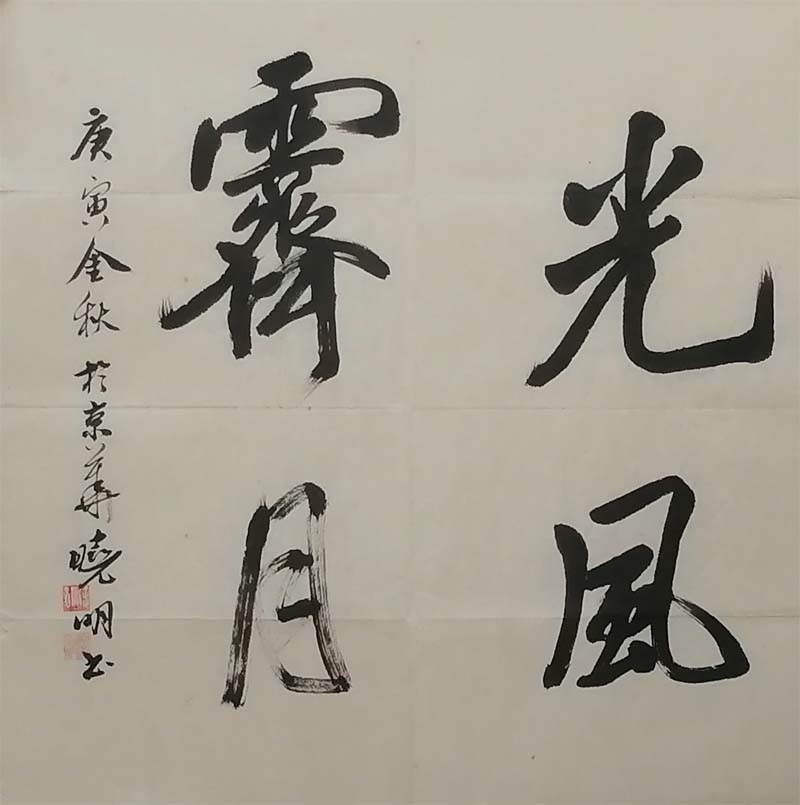 光風
霽月
庚寅金秋於京華曉明书